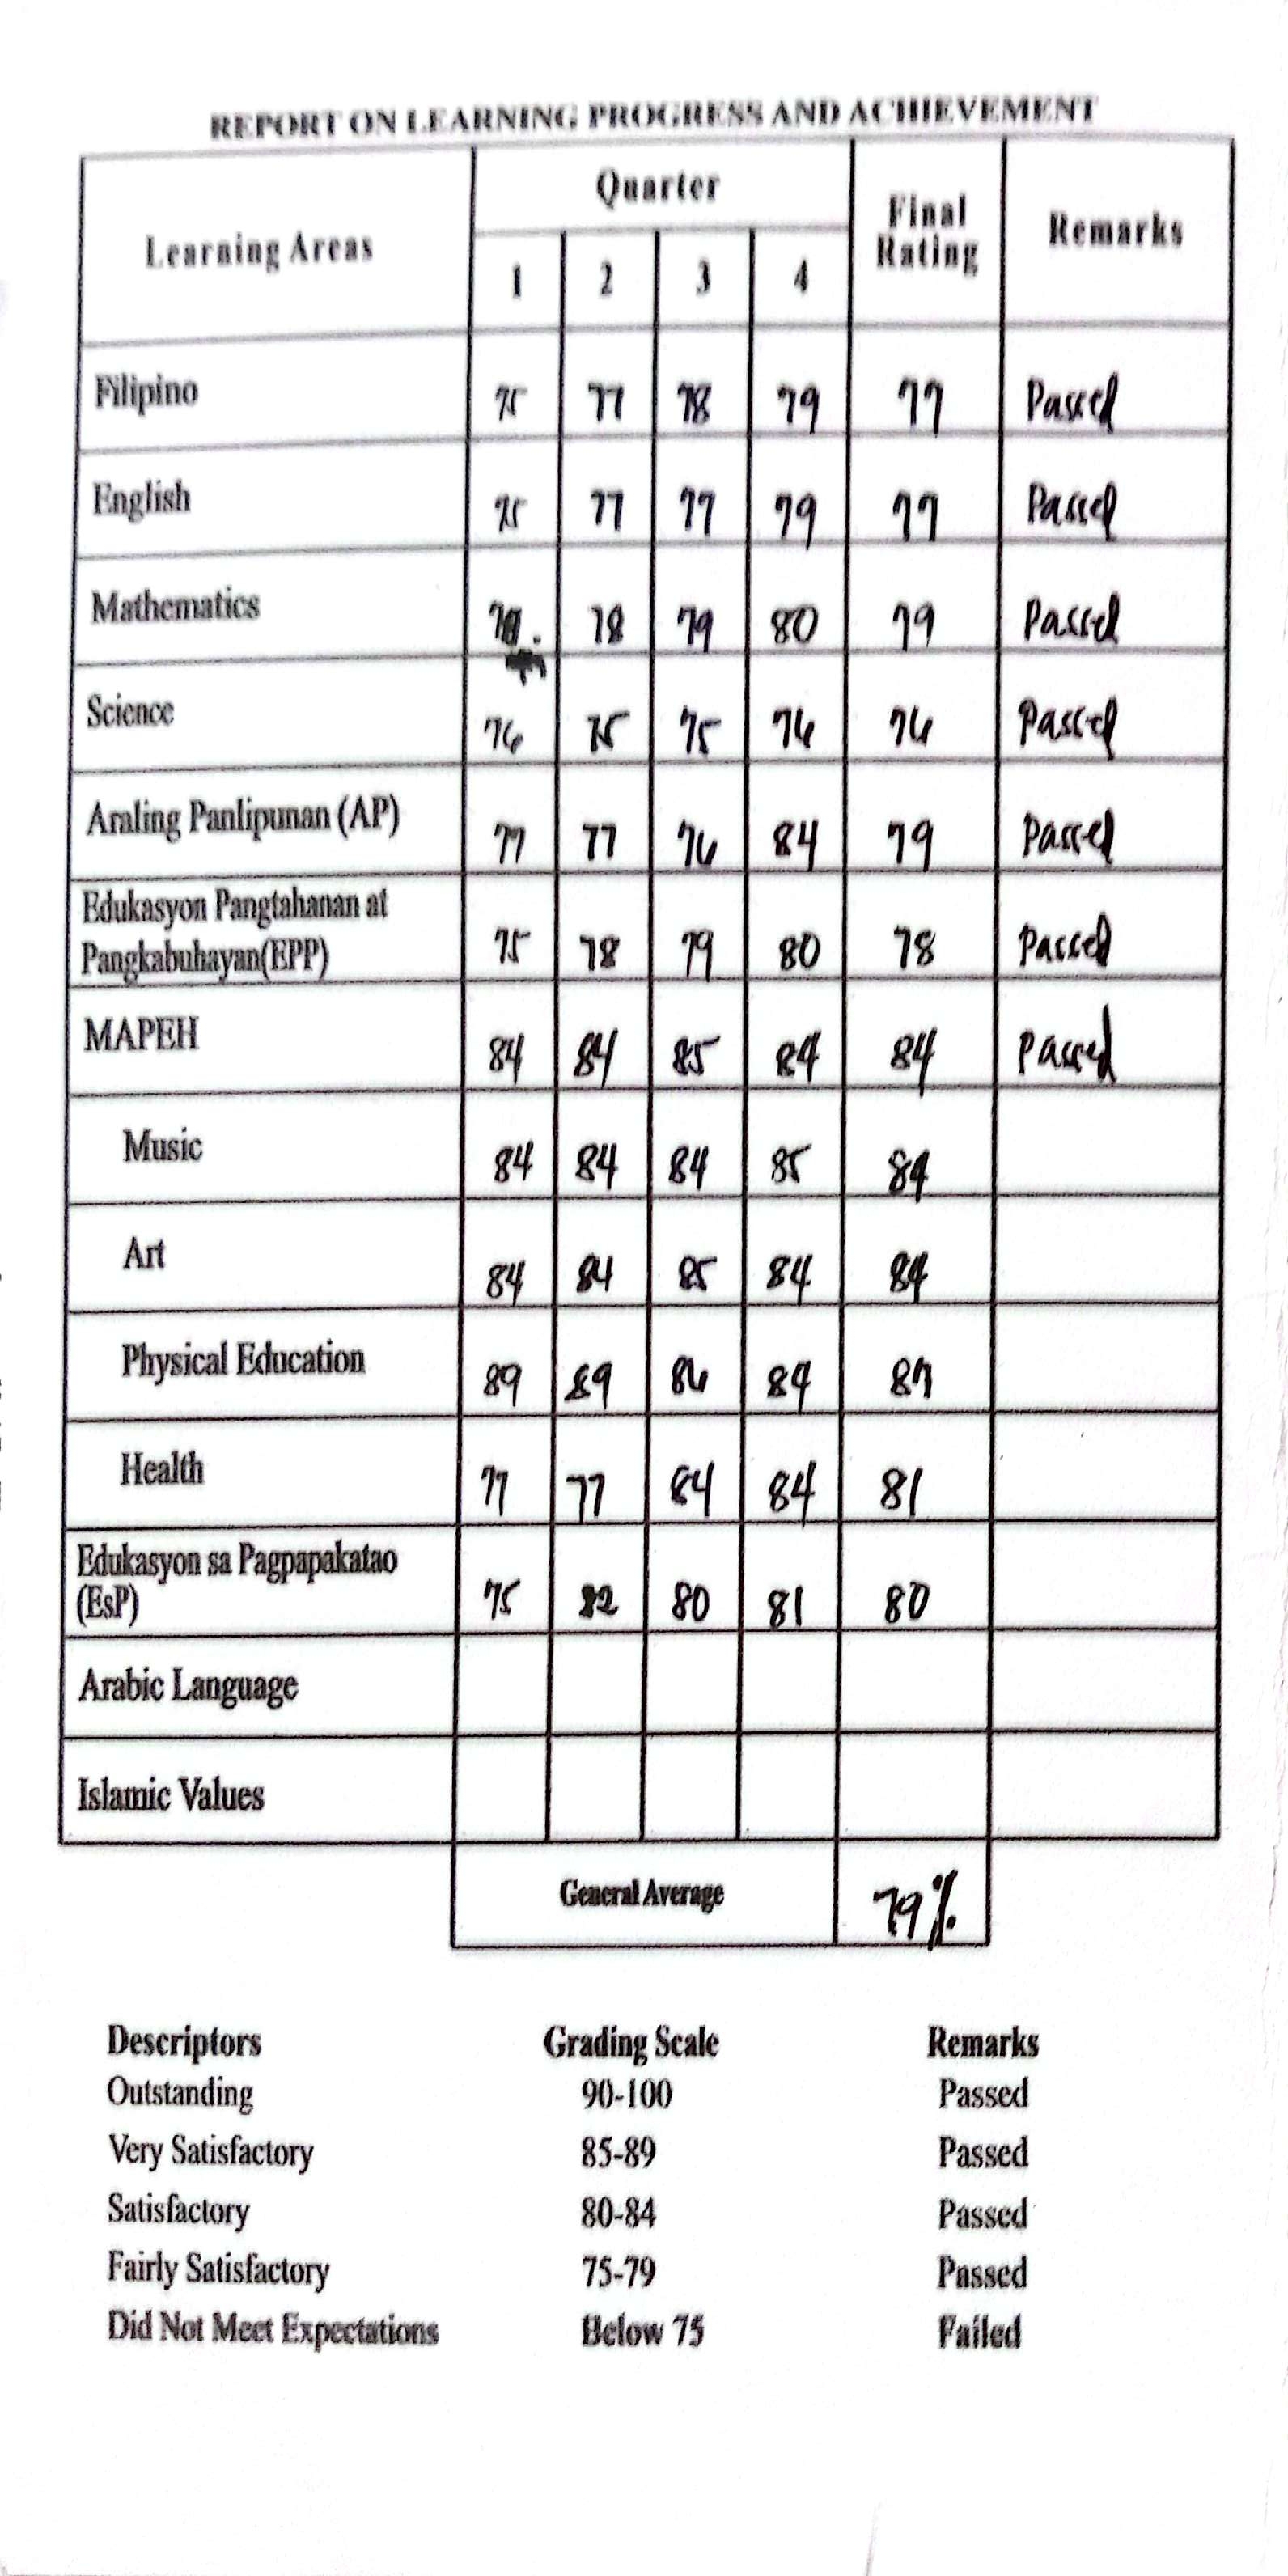 REPORT ON LEARNING PROGRESS AND ACHIEVEMENT
Learning Areas Quarter Final Rating Remarks
1 2 3 4
Filipino 75 77 78 79 77 Passed
English 75 77 77 79 77 Passed
Mathematics 78 79 80 79 Passed
Science 76 75 75 76 76 Passed
Araling Panlipunan (AP) 77 77 76 84 79 Passed
Edukasyon Pangtahanan at
Pangkabuhayan(EPP) 75 78 79 80 78 Passed
MAPEH 84 84 85 84 84 Passed
Music 84 84 84 85 84
Art 84 84 85 84 84
Physical Education 89 89 86 84 87
Health 77 77 84 84 81
Edukasyon sa Pagpapakatao
(EsP) 75 82 80 81 80
Arabic Language
Islamic Values
General Average 79%
Descriptors Grading Scale Remarks
Outstanding 90-100 Passed
Very Satisfactory 85-89 Passed
Satisfactory 80-84 Passed
Fairly Satisfactory 75-79 Passed
Did Not Meet Expectations Below 75 Failed